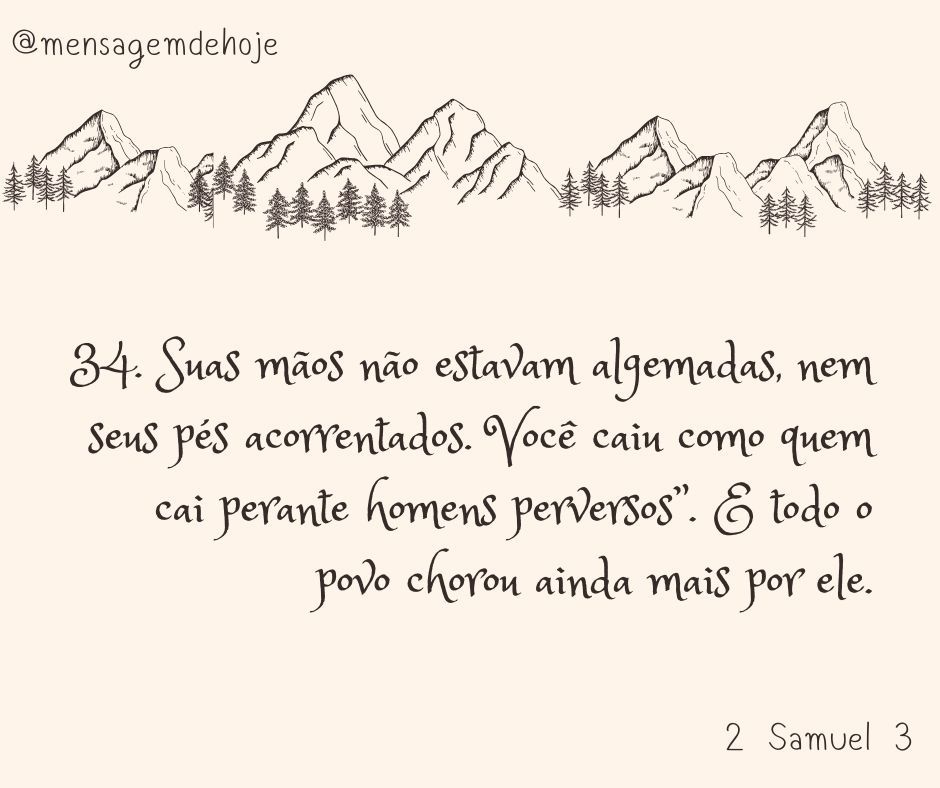 @mensagemdehoje
34. Suas mãos não estavam algemadas, nem
seus pés acorrentados. Você caiu como quem
cai perante homens perversos”. E todo o
povo chorou ainda mais por ele.
2 Samuel 3